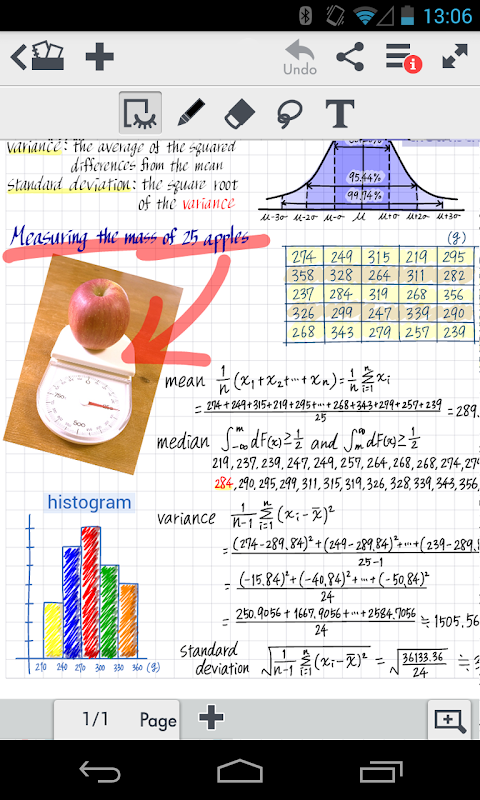 13:06
Undo
i
T
variance: the average of the squared
differences from the mean
standard deviation: the square root
of the variance
95.44%
99.74%
μ-3σ μ-2σ μ-σ μ μ+σ μ+2σ μ+3σ
Measuring the mass of 25 apples
(g)
274 249 315 219 295
358 328 264 311 282
237 284 319 268 356
326 299 247 339 290
268 343 279 257 239
mean 1/n (x₁+x₂+…+xₙ) = 1/n Σⁿᵢ₌₁ xᵢ
= 274+249+315+219+295+…+268+343+279+257+239 / 25 = 289.
median ∫₋∞ᵐ dF(x) ≥ 1/2 and ∫ₘ∞ dF(x) ≥ 1/2
219, 237, 239, 247, 249, 257, 264, 268, 268, 274, 27
284, 290, 295, 299, 311, 315, 319, 326, 328, 339, 343, 356,
histogram
variance 1/n-1 Σⁿᵢ₌₁ (xᵢ-x̄)²
= (274-289.84)²+(249-289.84)²+…+(239-289.8 / 25-1
= (-15.84)²+(-40.84)²+…+(-50.84)² / 24
= 250.9056+1667.9056+…+2584.7056 / 24 ≒ 1505.56
standard
deviation √(1/n-1 Σⁿᵢ₌₁ (xᵢ-x̄)²) = √(36133.36/24) ≒ 3
210 240 270 300 330 360 (g)
1/1 Page